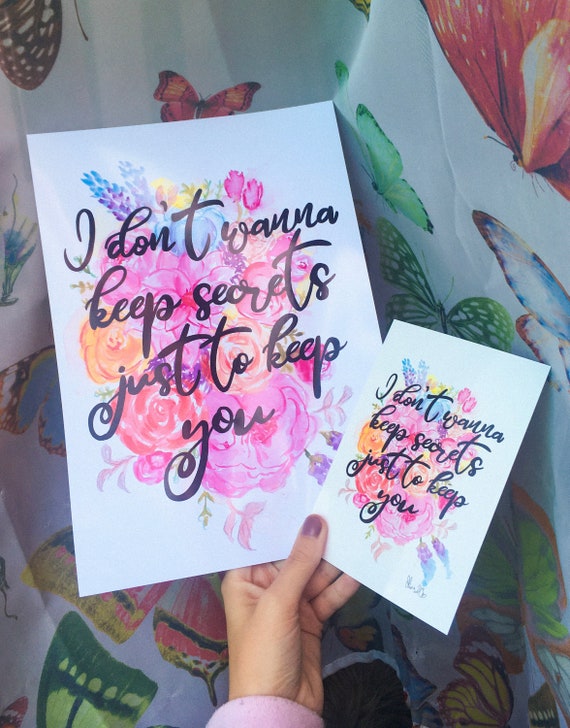 I don't wanna
keep secrets
just to keep
you
I don't wanna
keep secrets
just to keep
you